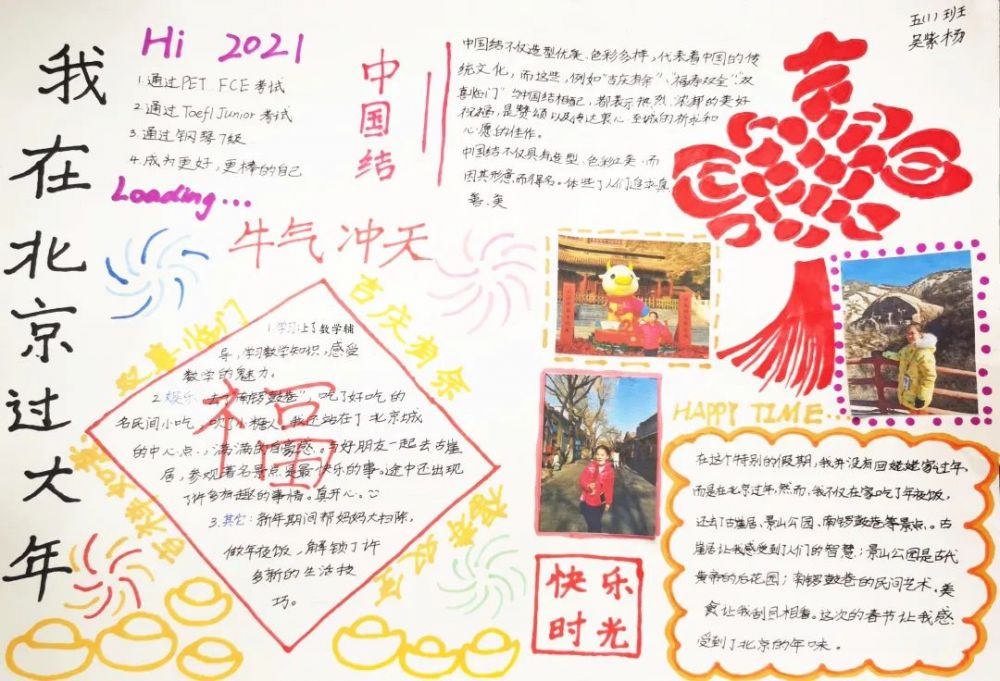 五(1)班
吴紫杨
我在北京过大年
Hi 2021
1.通过PET FCE考试
2.通过Toefl Junior考试
3.通过钢琴7级
4.成为更好,更棒的自己
Loading...
中国结
中国结不仅造型优美、色彩多样,代表着中国的传
统文化,而这些,例如“吉庆有余”、“福寿双全”、“双
喜临门”与中国结相配,都表示热烈、浓郁的美好
祝福,是赞颂以及传达衷心至诚的祈求和
心愿的佳作。
中国结不仅具有造型、色彩之美,而
因其形意而得名。体些了人们追求真
善、美
牛气冲天
双喜临门
吉庆有余
福寿双全
福
1.学习:上了数学辅
导,学习数学知识,感受
数学的魅力。
2.娱乐:去了“南锣鼓巷”,吃了好吃的
名民间小吃,吹了小糖人,我还站在了北京城
的中心点,满满的自豪感。与好朋友一起去古崖
居,参观著名景点是最快乐的事。途中还出现
了许多有趣的事情。真开心。
3.其它:新年期间帮妈妈大扫除,
做年夜饭,解锁了许
多新的生活技
巧。
快乐
时光
HAPPY TIME...
在这个特别的假期,我并没有回姥姥家过年,
而是在北京过年,然而,我不仅在家吃了年夜饭,
还去了古崖居、景山公园、南锣鼓巷等景点。古
崖居让我感受到了人们的智慧;景山公园是古代
黄帝的后花园;南锣鼓巷的民间艺术、美
食让我刮目相看。这次的春节让我感
受到了北京的年味。